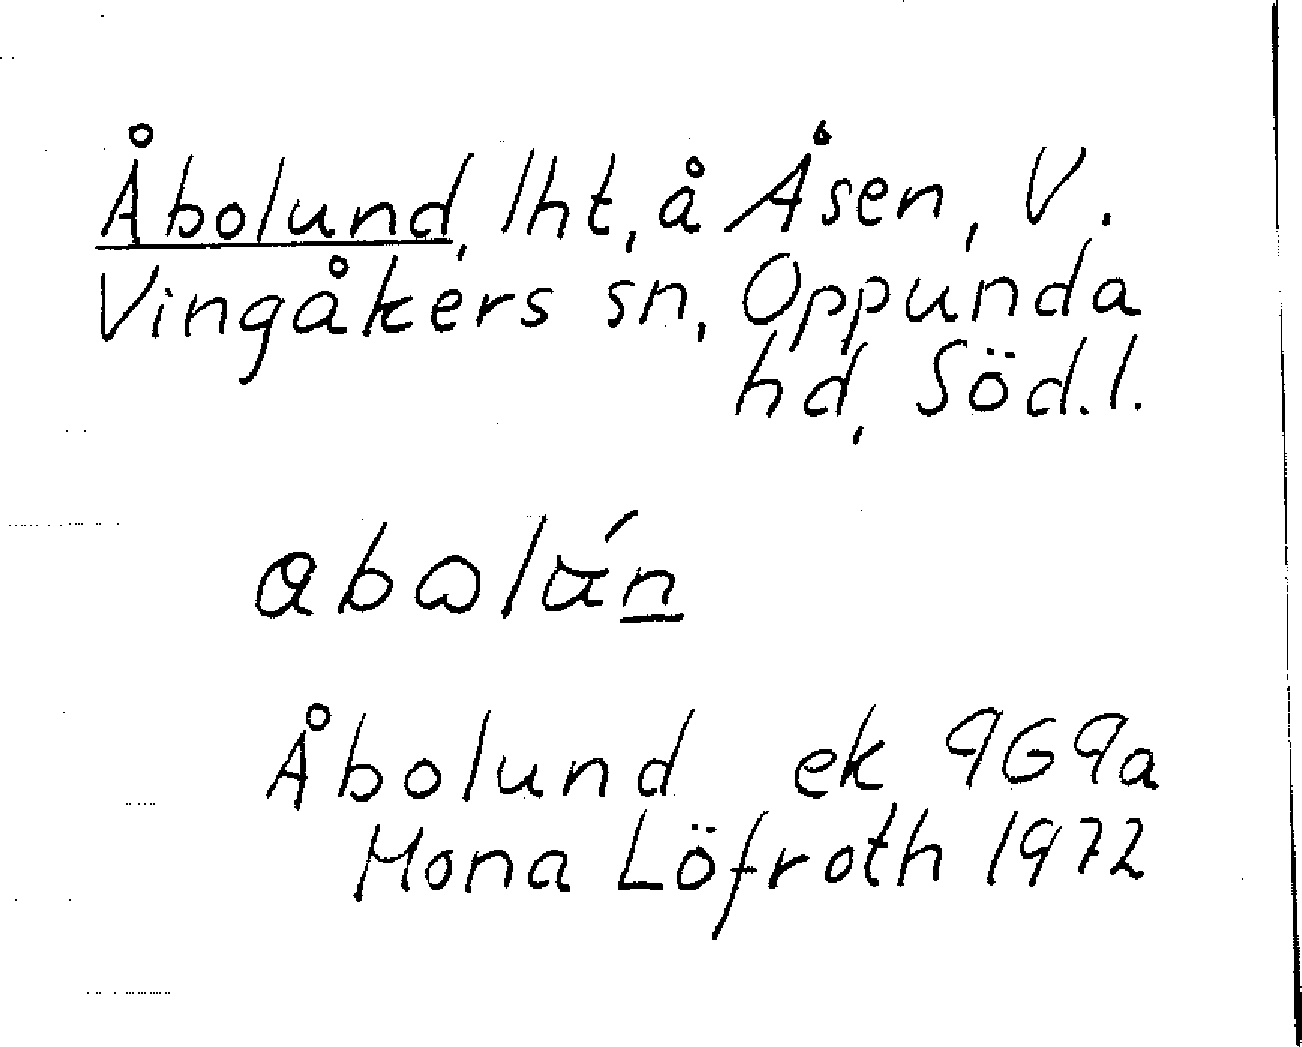 Åbolund, lht, å Åsen, V.
Vingåkers sn, Oppunda
hd, Söd.l.
Åbolund ek 9G9a
Mona Löfroth 1972